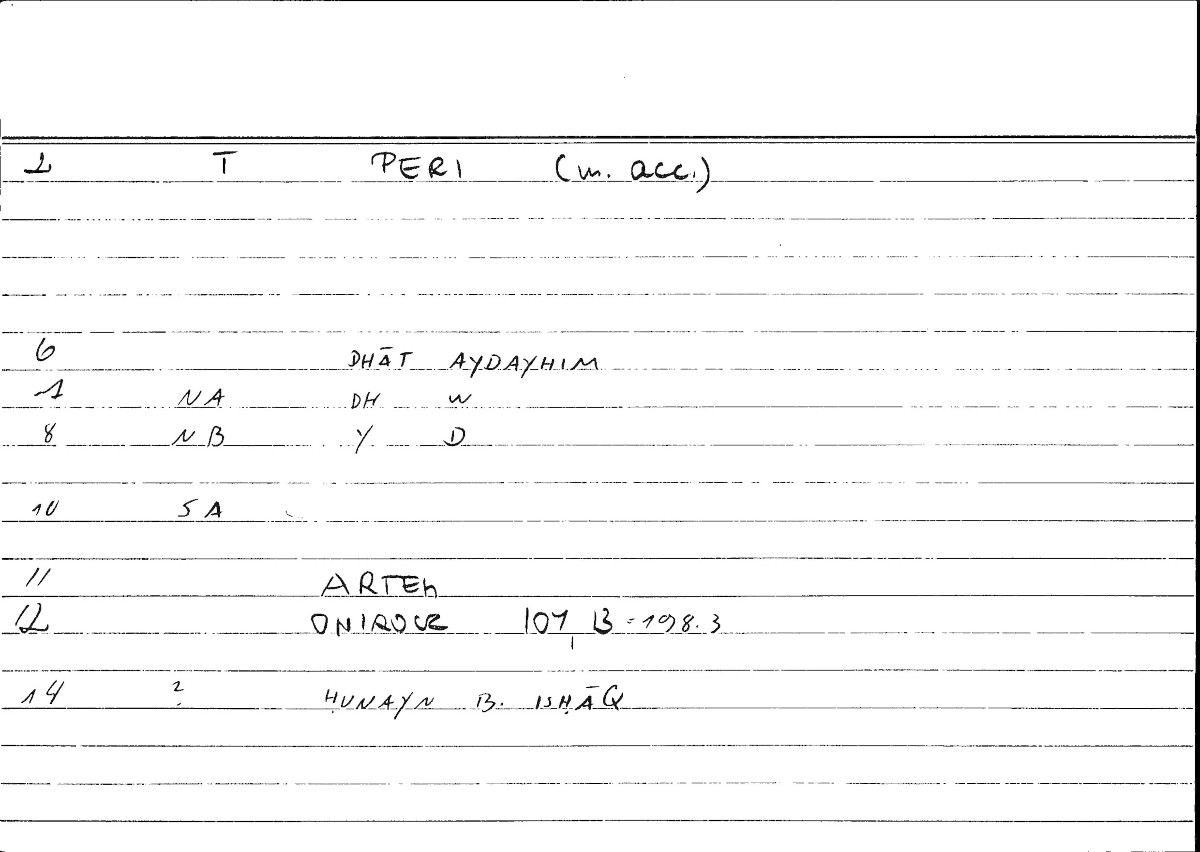 1 T PERI (m. acc.)
6 DHĀT AYDAYHIM
1 NA DH W
8 NB Y D
10 SA
11 ARTEM
12 ONIROCR 107, B = 198.3
14 ? ḤUNAYN B. ISḤĀQ